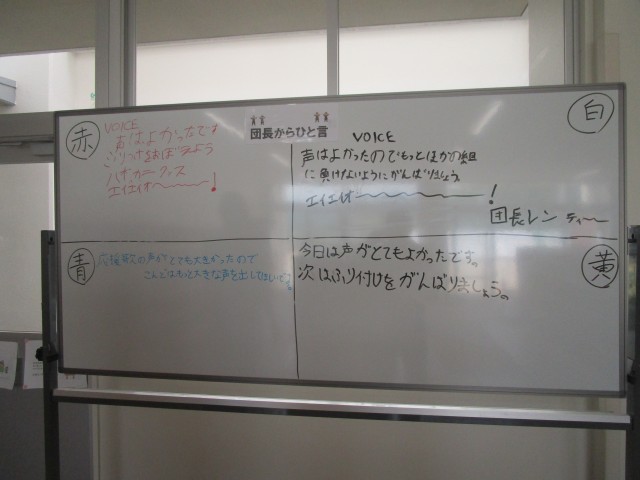 団長からひと言
赤
VOICE
声はよかったです
ふりつけをおぼえよう
エイエイオー〜〜〜!
白
VOICE
声はよかったのでもっとほかの組
に負けないようにがんばりましょう。
エイエイオー〜〜〜!
団長レン ティ〜〜
青
応援歌の声がとても大きかったので
こんどはもっと大きな声を出してほしいです。
黄
今日は声がとてもよかったです。
次はふり付けをがんばりましょう。